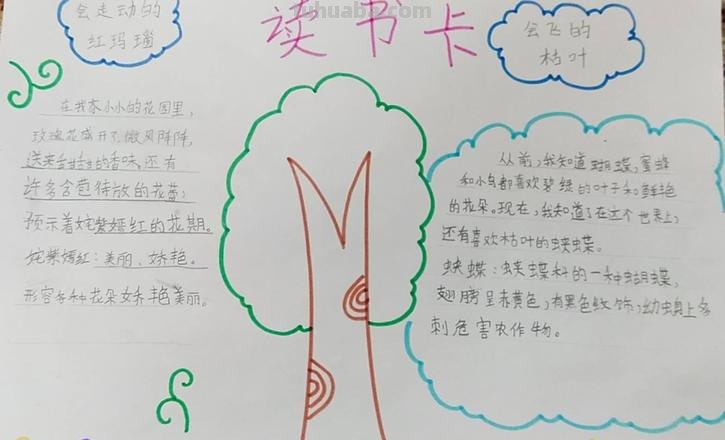 tuhuaba.com
会走动的
红玛瑙
读书卡
会飞的
枯叶
在我家小小的花园里,
玫瑰花盛开了,微风阵阵,
送来全牲牲的香味,还有
许多含苞待放的花蕾,
预示着姹紫嫣红的花期。
姹紫嫣红:美丽、娇艳。
形容各种花朵娇艳美丽。
从前,我知道蝴蝶,蜜蜂
和小鸟都喜欢碧绿的叶子和鲜艳
的花朵。现在,我知道了在这个世界上,
还有喜欢枯叶的蛱蝶。
蛱蝶:蛱蝶科的一种蝴蝶,
翅膀呈赤黄色,有黑色纹饰,幼虫身上多
刺危害农作物。